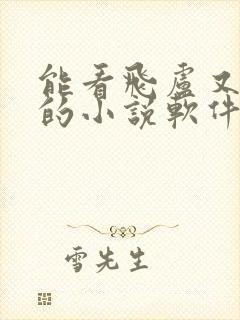 能看飛盧又
的小說軟件
雪先生